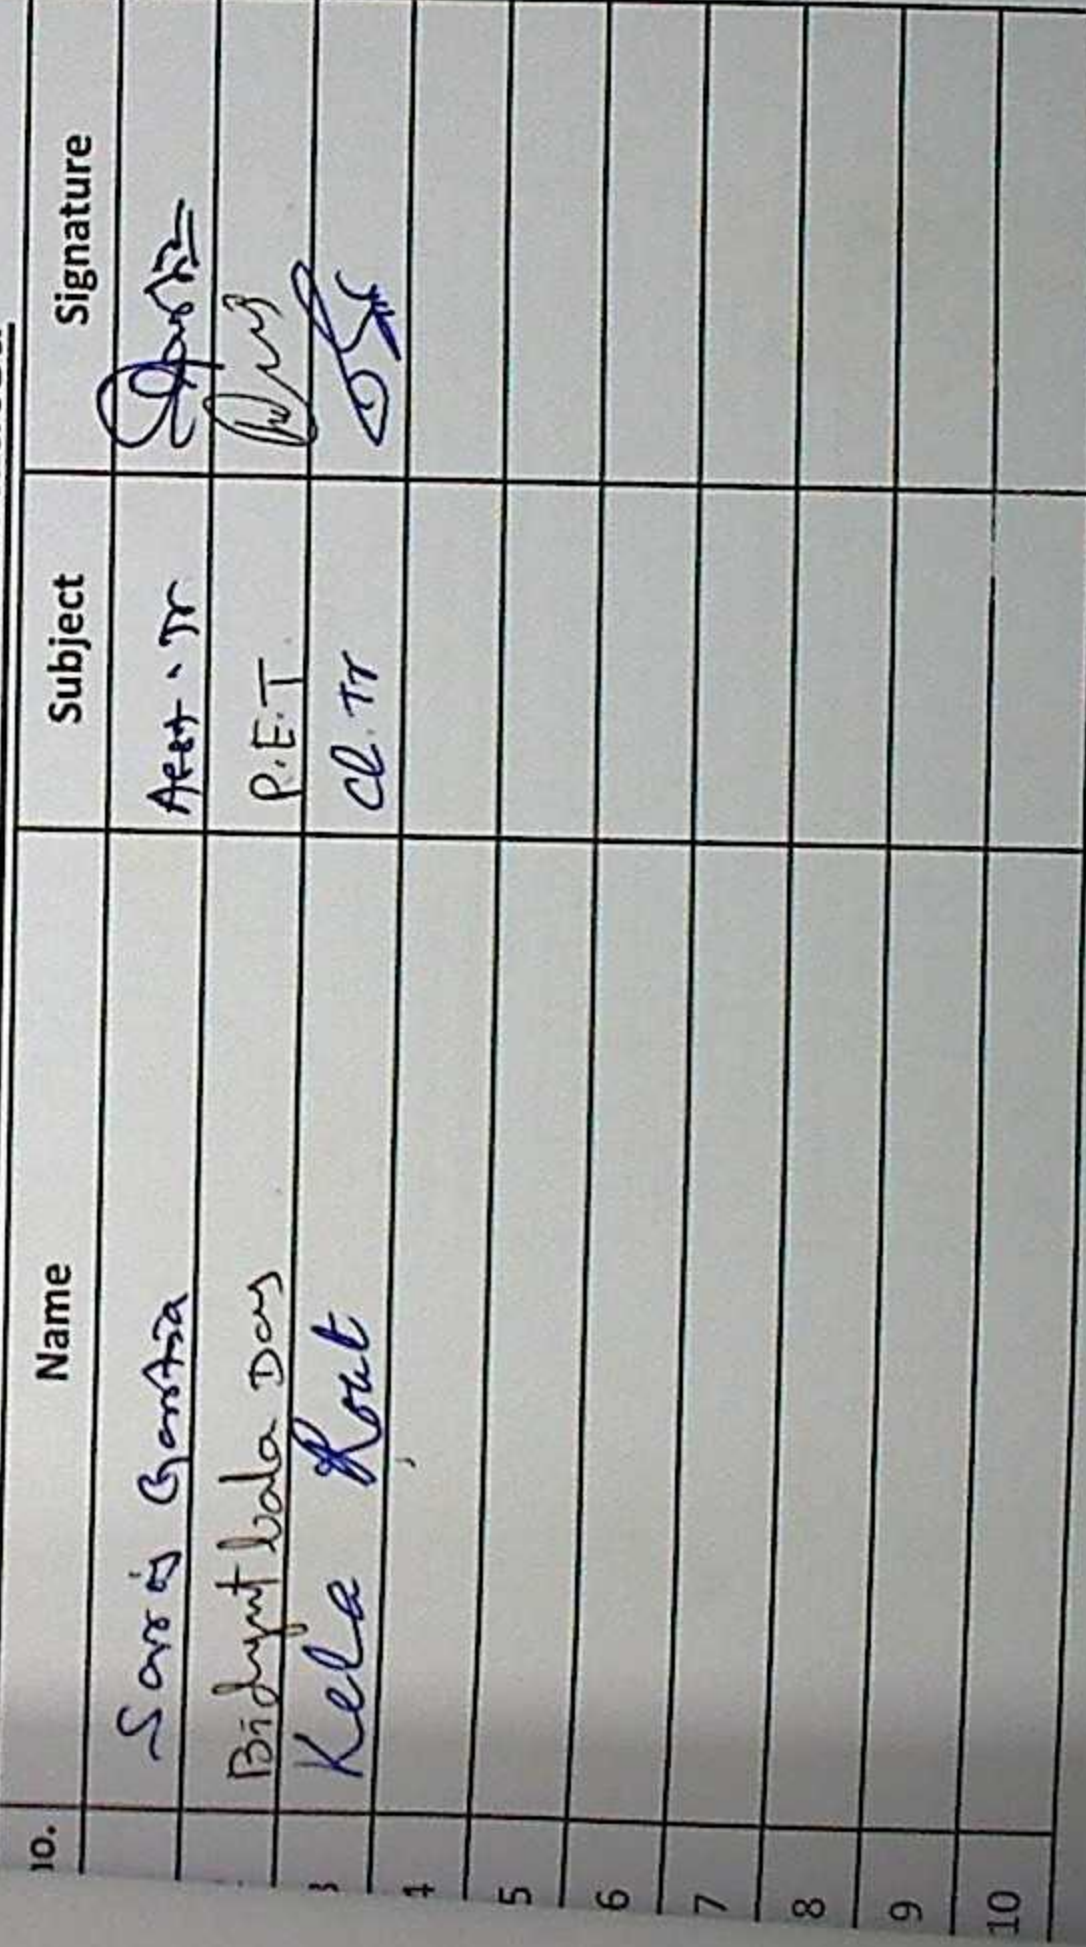 Name Subject Signature
Saroj Bantia
Bidyut bala Das P.E.T
3 Kela Rout Cl. Tr
4
5
6
7
8
9
10